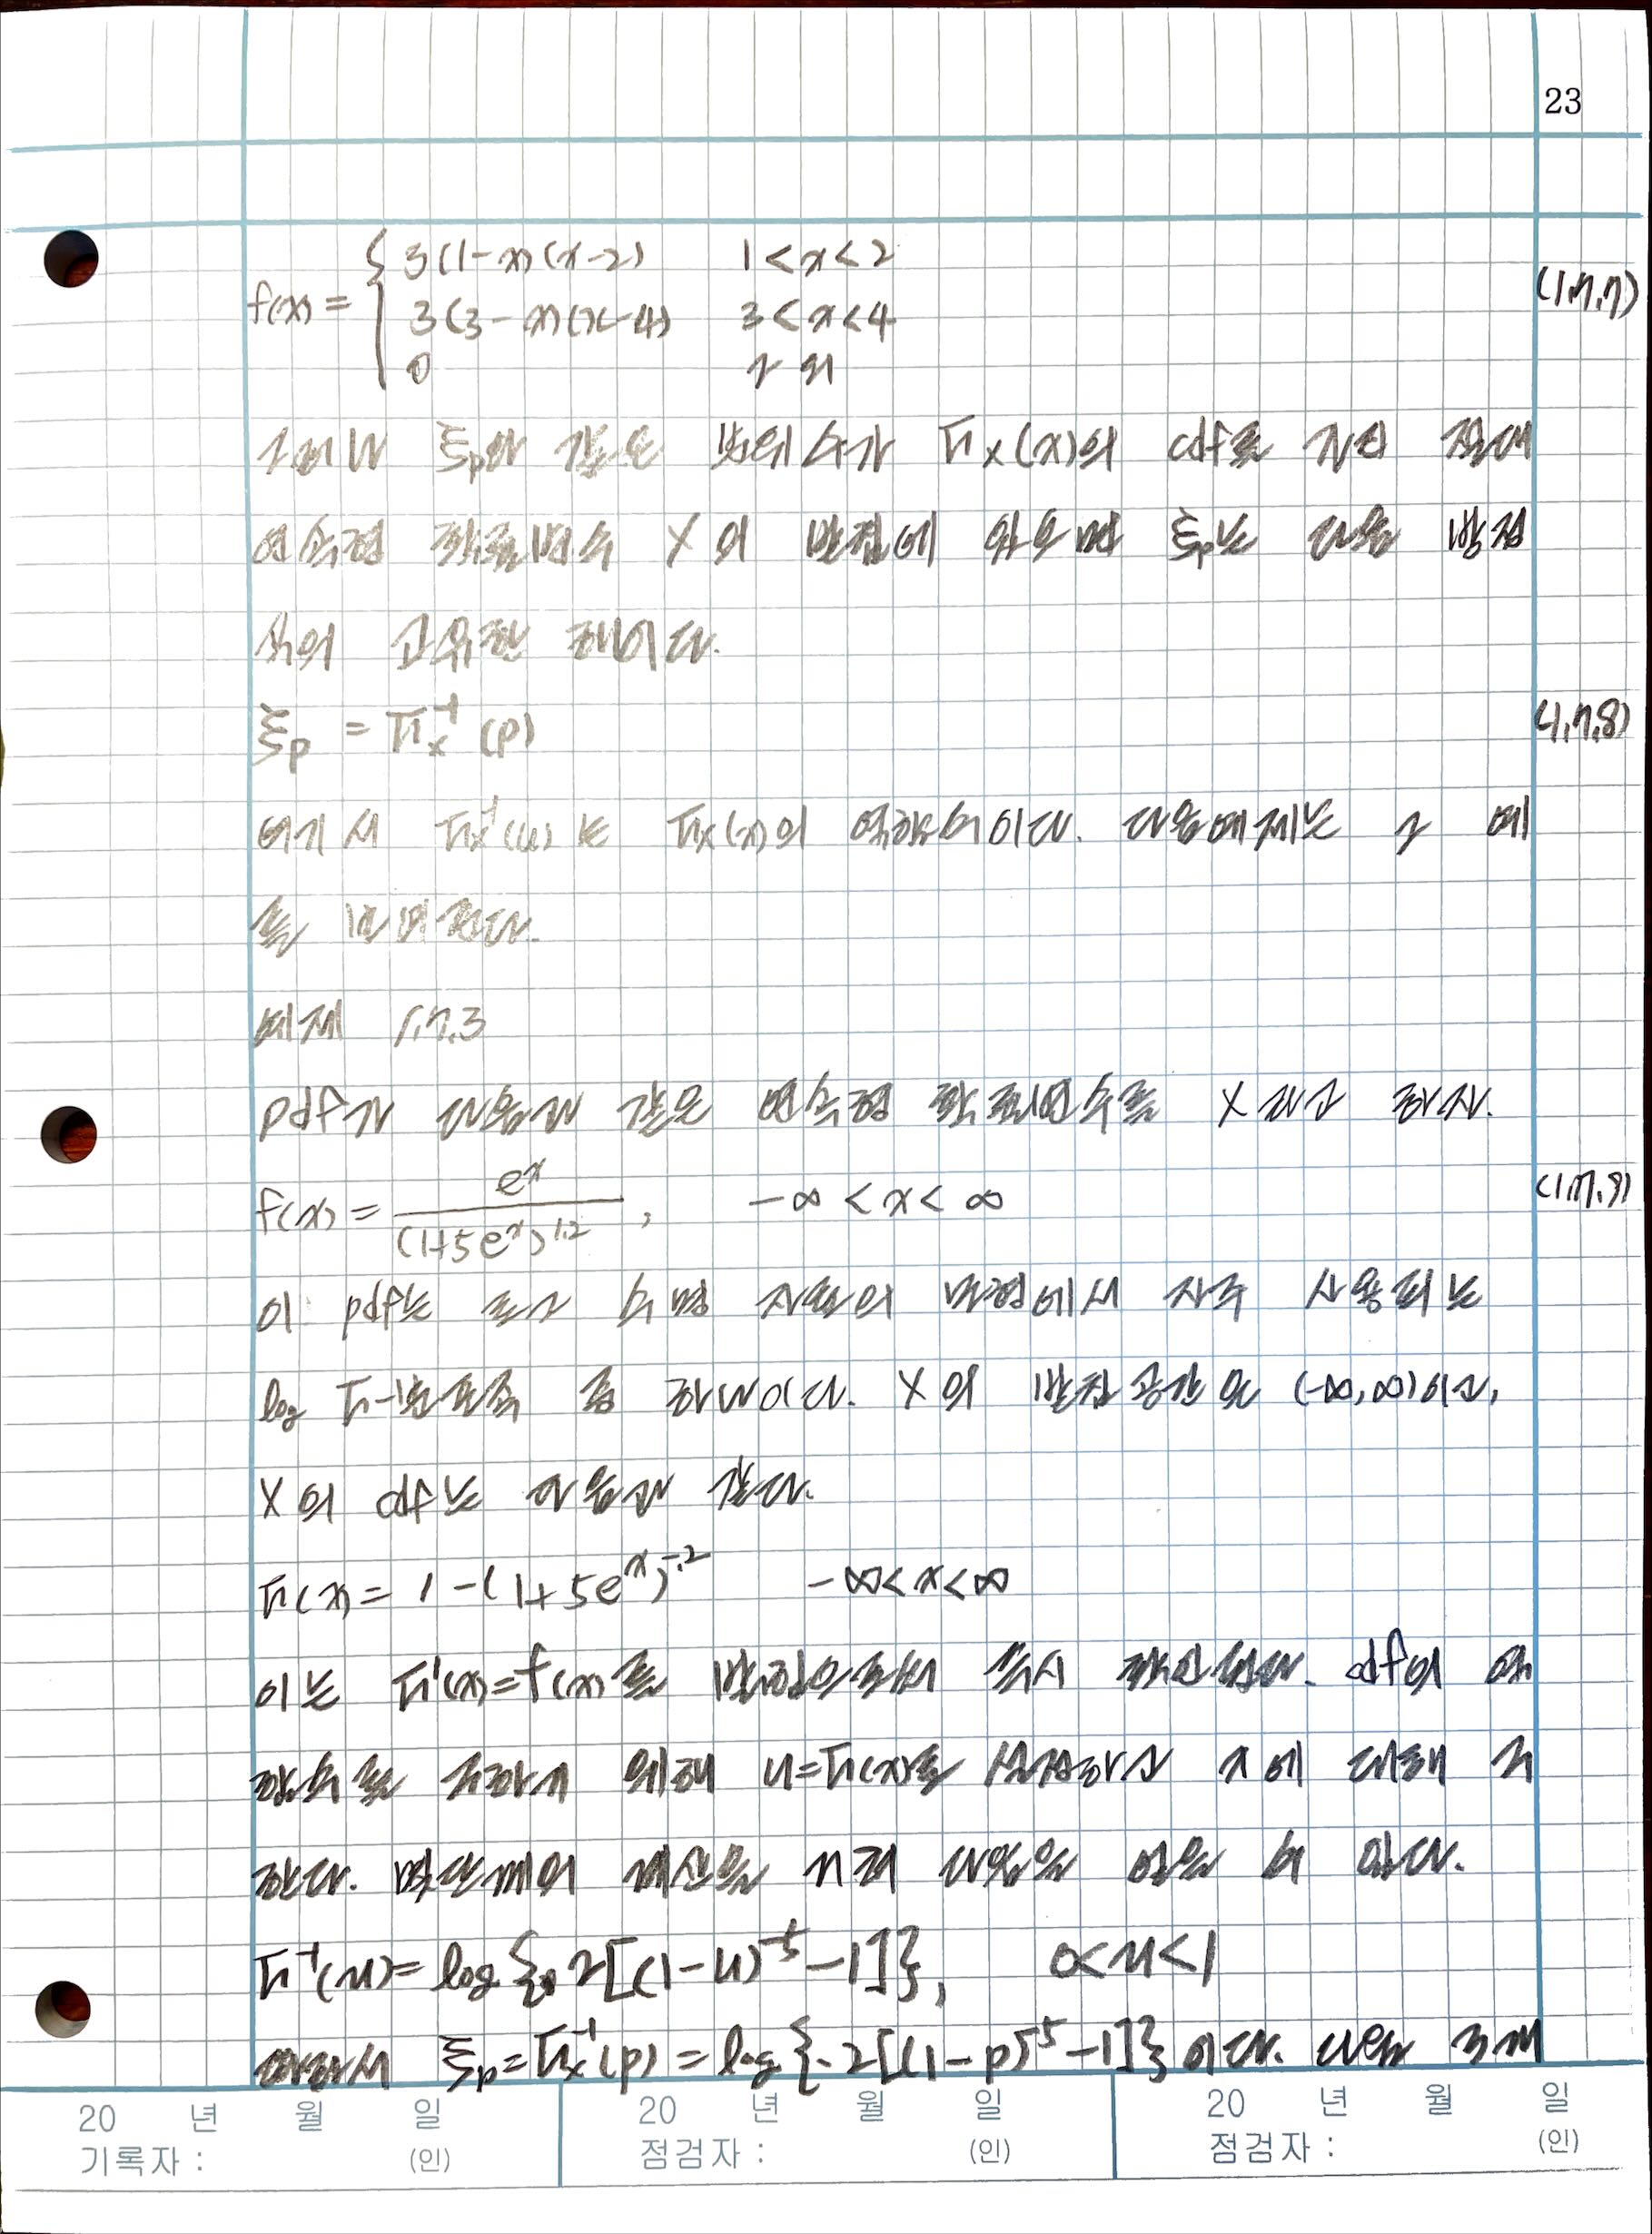 23
f(x) = { 3(1-x)(x-2) 1<x<2 (1.7.7)
3(3-x)(x-4) 3<x<4
0 그 외
그러나 ξp와 같은 분위수가 Fx(x)의 cdf를 가진
연속형 확률변수 X의 받침에 있으면 ξp는 다음 방정
식의 고유한 해이다.
ξp = Fx⁻¹(p) (1.7.8)
여기서 Fx⁻¹(u)는 Fx(x)의 역함수이다. 다음 예제는 그 예
를 보여준다.
예제 1.7.3
pdf가 다음과 같은 연속형 확률변수를 X라고 하자.
f(x) = eˣ/(1+5eˣ)^1.2, -∞<x<∞ (1.7.9)
이 pdf는 로그 수명 자료의 모형에서 자주 사용되는
log F-분포족 중 하나이다. X의 받침 공간은 (-∞,∞)이고,
X의 cdf는 다음과 같다.
F(x) = 1-(1+5eˣ)^-.2 -∞<x<∞
이는 F'(x)=f(x)를 으로써 즉시 확인된다. cdf의 역
함수를 구하기 위해 u=F(x)를 설정하고 x에 대해 구
한다. 몇 단계의 계산을 거쳐 다음을 얻을 수 있다.
F⁻¹(u) = log{.2[(1-u)⁻⁵-1]}, 0<u<1
따라서 ξp=Fx⁻¹(p) = log{.2[(1-p)⁻⁵-1]}이다. 다음
20 년 월 일 20 년 월 일 20 년 월 일
기록자 : (인) 점검자 : (인) 점검자 : (인)